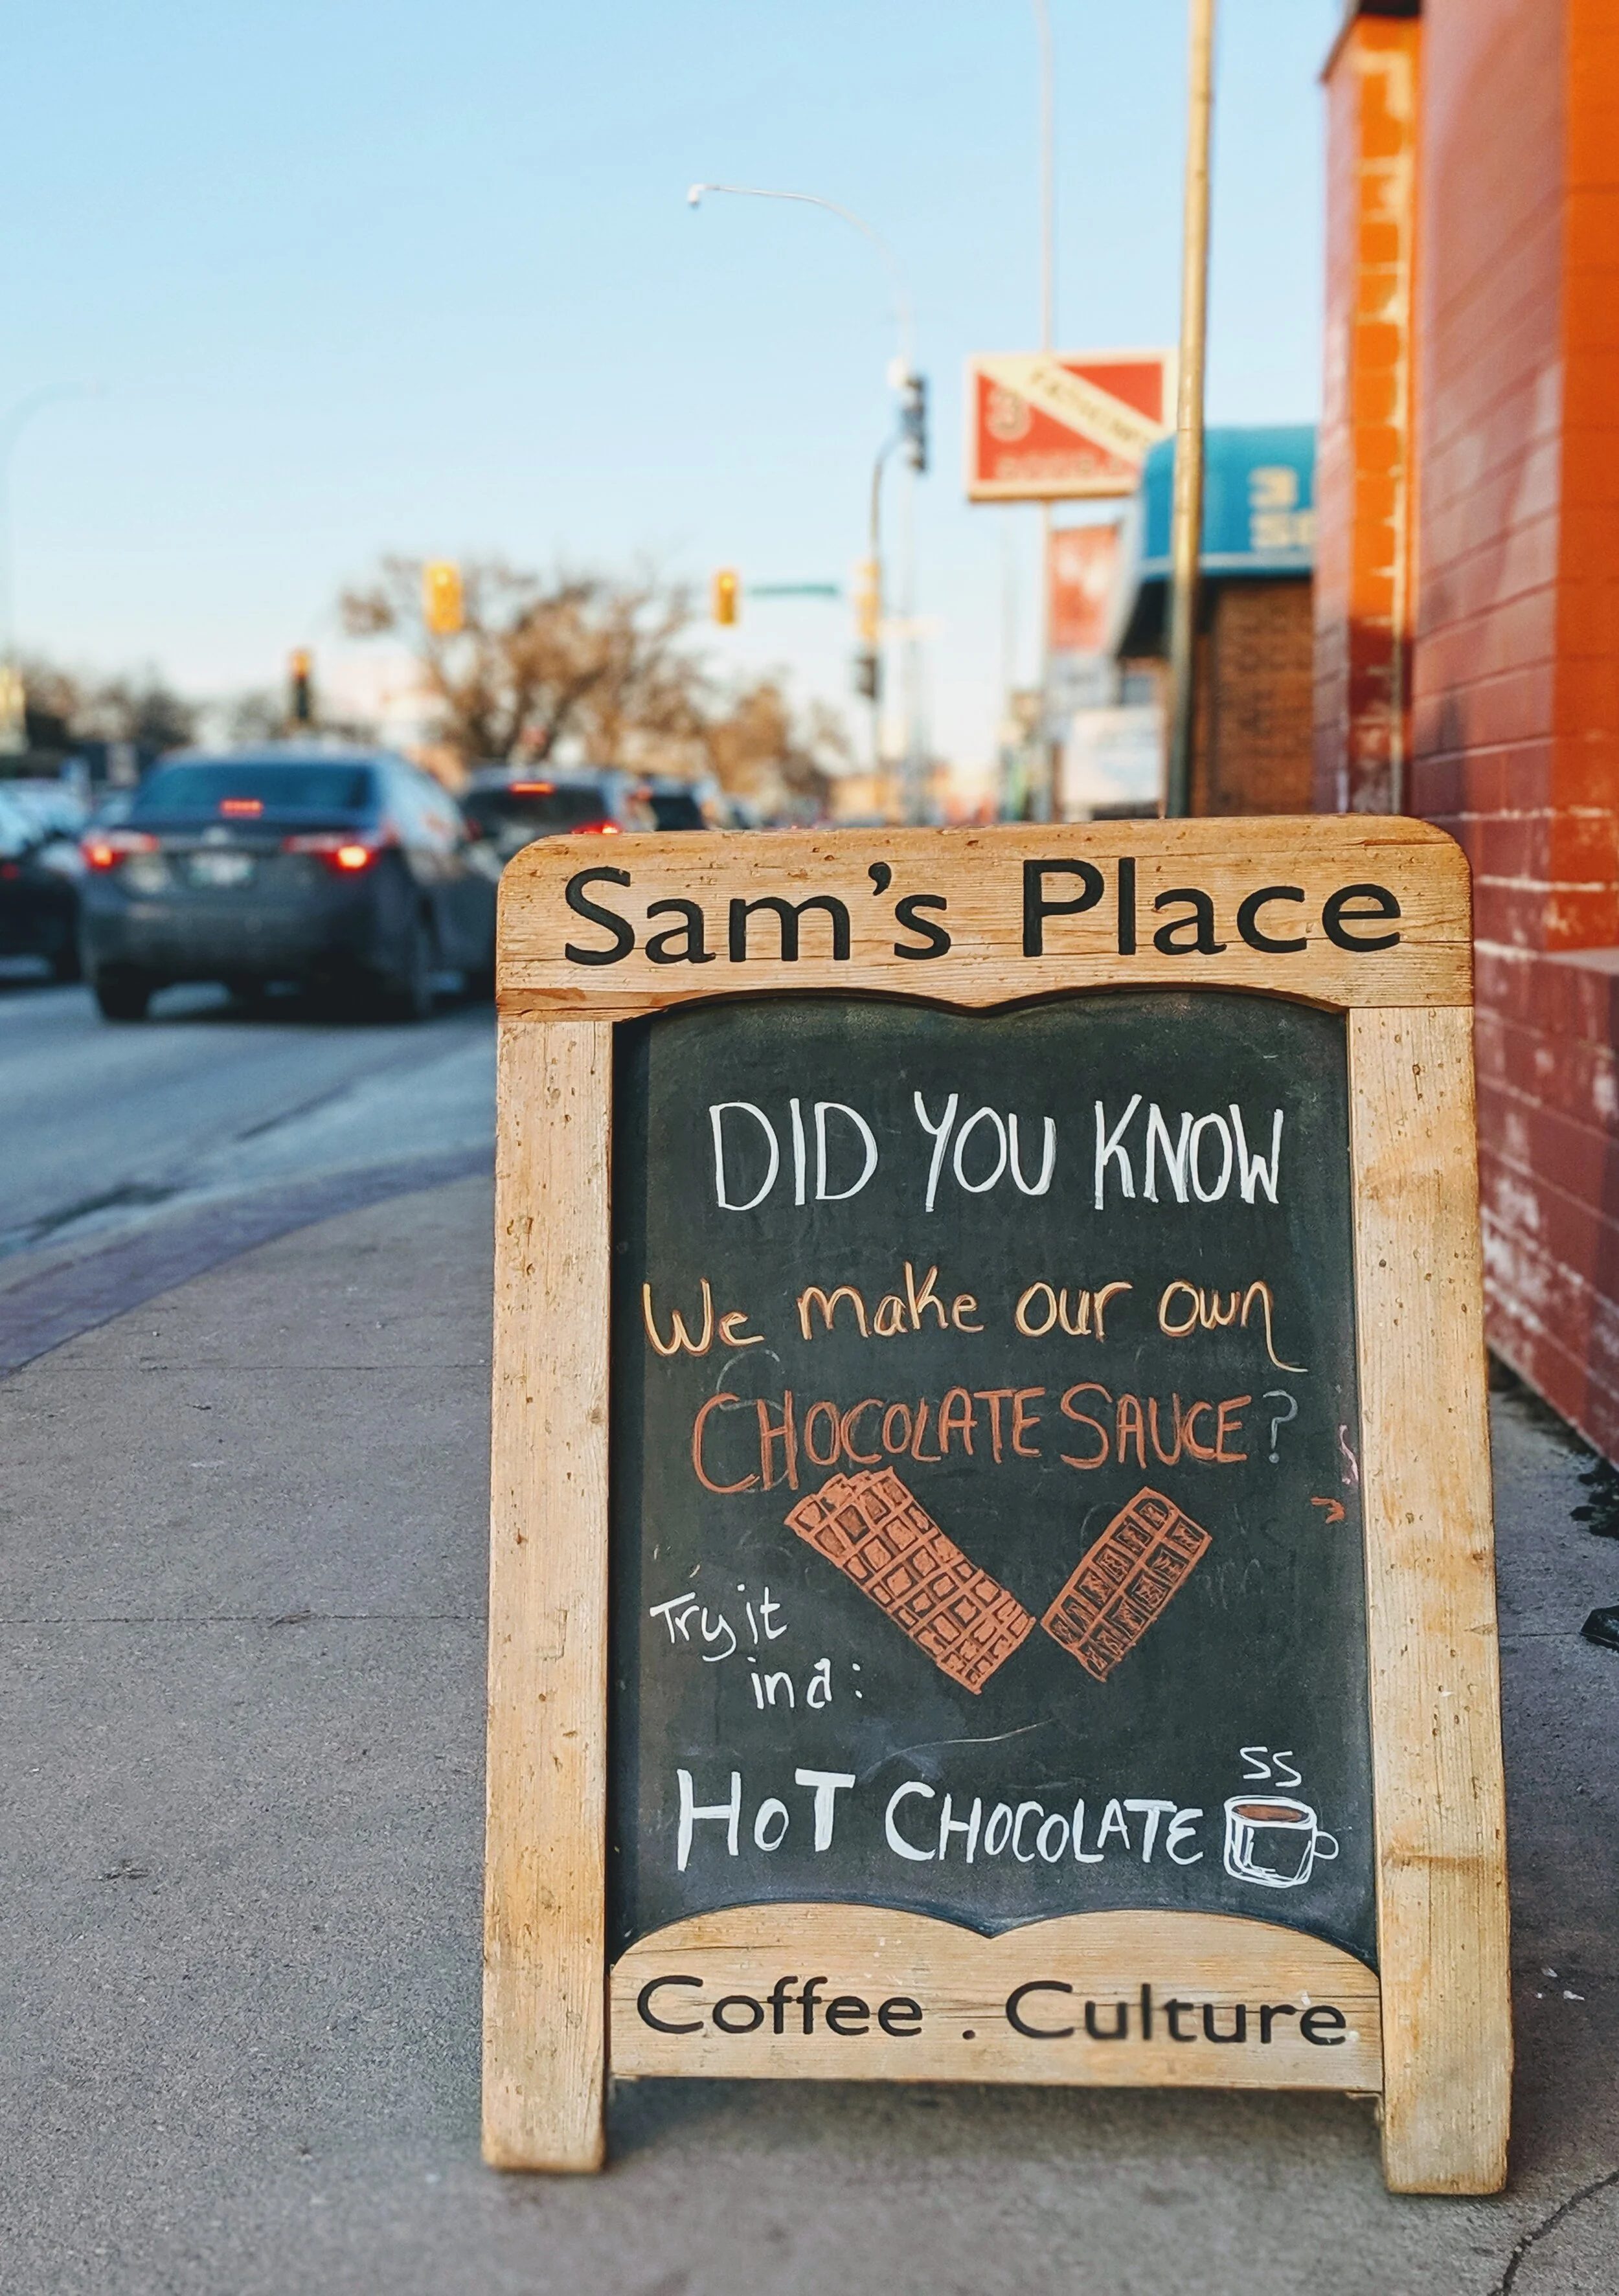 Sam's Place
DID YOU KNOW
We make our own
CHOCOLATE SAUCE?
Try it
in a:
HOT CHOCOLATE
Coffee . Culture